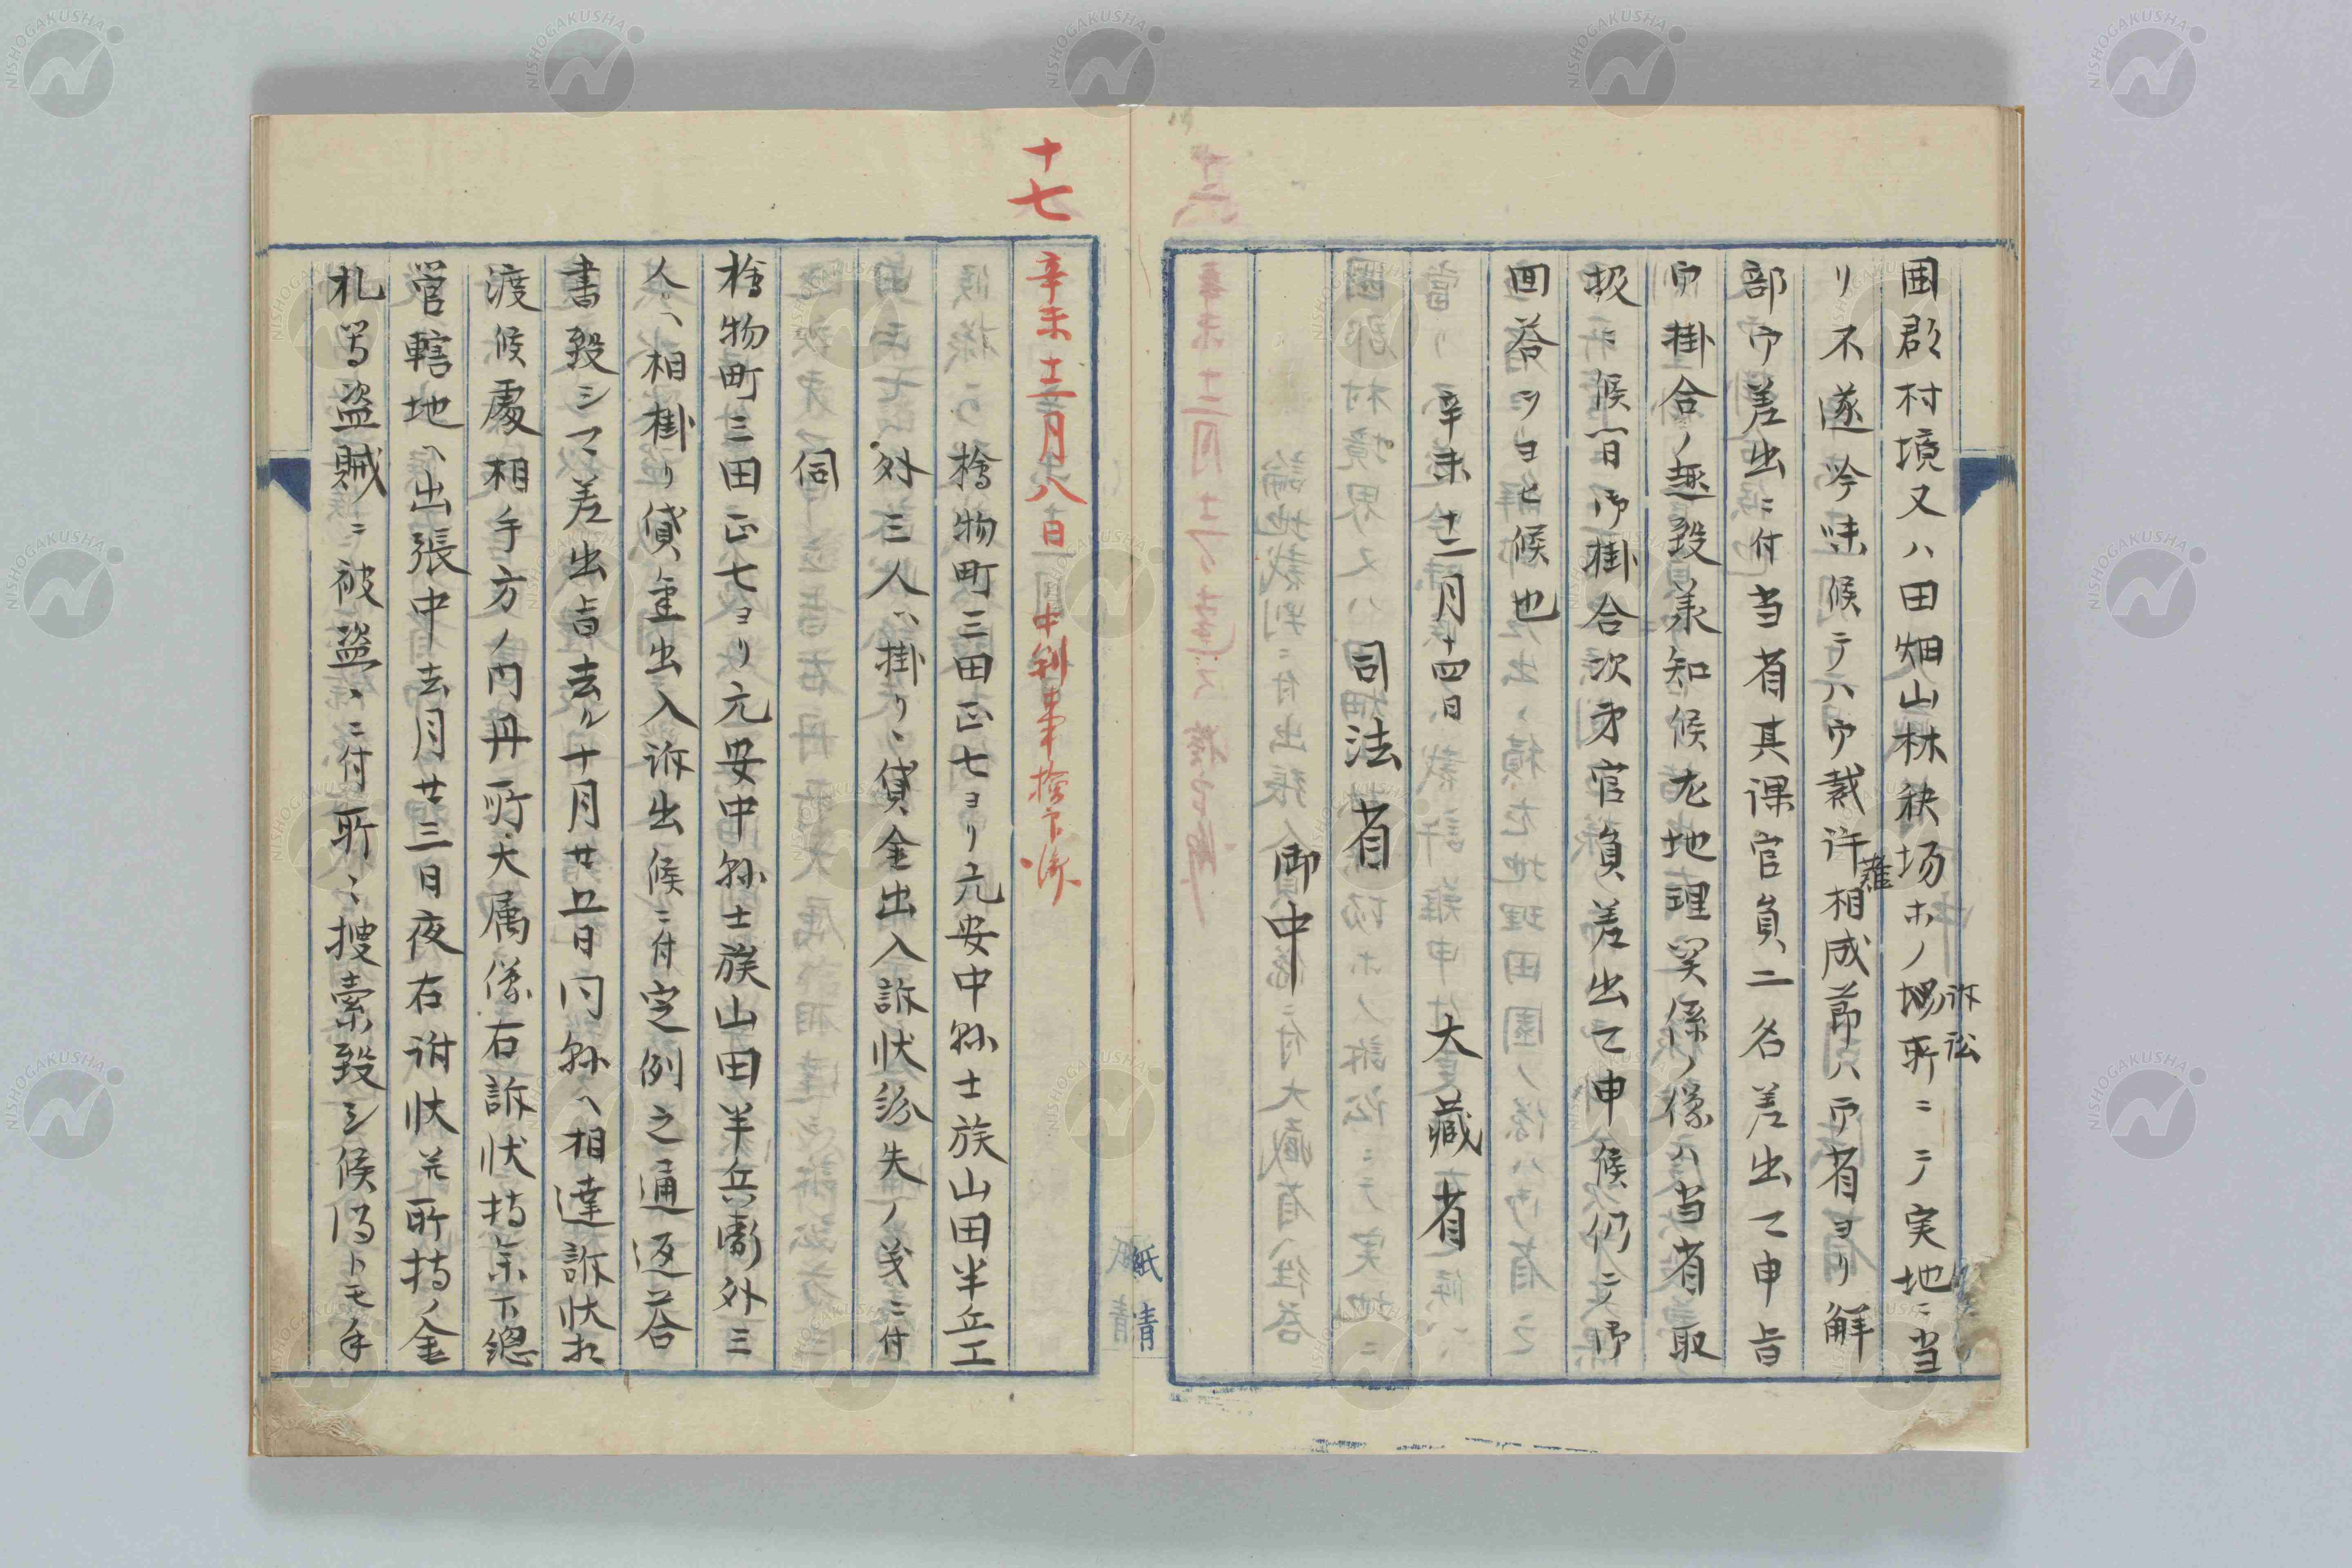 国郡村境又ハ田畑山林秣場ホノ場所ニテ実地ニ当
訴訟
リ不遂吟味候テハ御裁許相成節ハ御省ヨリ解
難
部御差出ニ付当省其課官員二名差出て申旨
御掛合ノ趣致承知候尤地理関係ノ儀ハ当省取
扱ニ候旨御掛合次第官員差出て申候仍テ御
回答ツヨヒ候也
辛未十二月十四日 大蔵省
司法省
御中
紙青
十七
辛未十二月八日中判事
檜物町三田正七ヨリ元安中縣士族山田半兵工
外三人ヘ掛リ貸金出入訴状紛失ノ義ニ付
伺
檜物町三田正七ヨリ元安中縣士族山田半兵衛外三
人ヘ相掛リ貸金出入訴出候ニ付定例之通返答
書致シて差出旨去ル十月廿五日同縣ヘ相達訴状相
渡候處相手方ノ内丹所大属儀右訴状持参下總
管轄地ヘ出張中去月廿三日夜右訴状並所持ノ金
札等盗賊ニ被盗ニ付所ニ捜索致シ候得トモ手
NISHOGAKUSHA